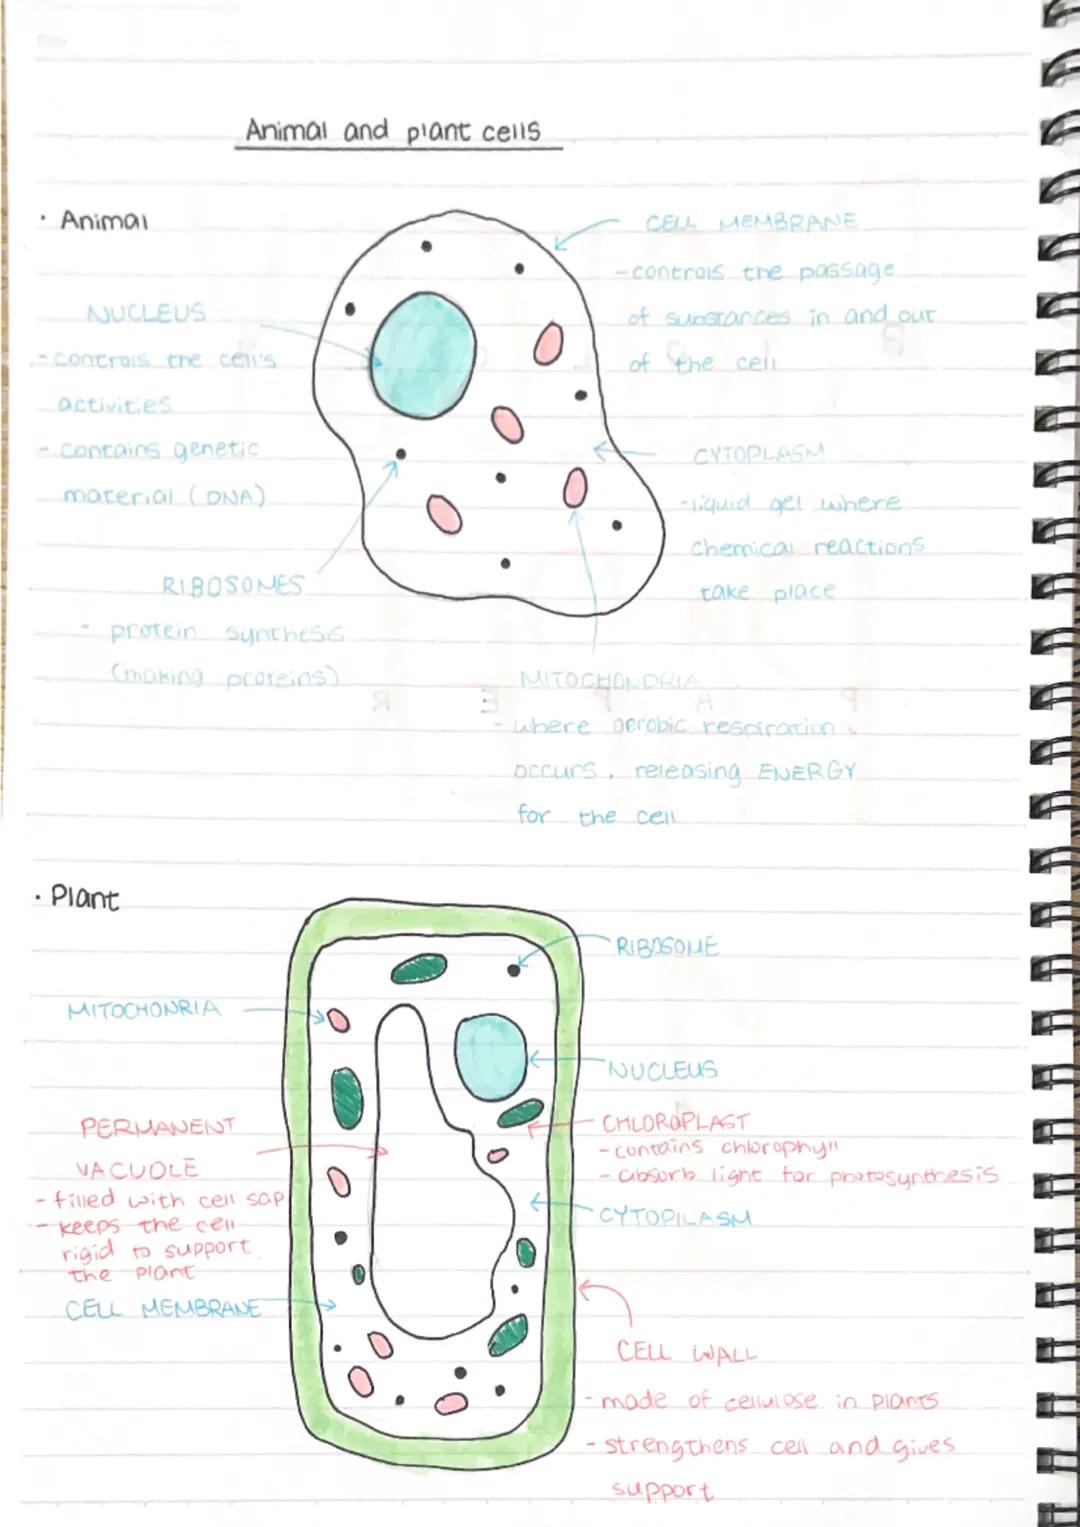 Animal and plant cells
· Animal
CELL MEMBRANE
- controls the passage
of substances in and out
of the cell
NUCLEUS
- controls the cell's
activities
- contains genetic
material (DNA)
CYTOPLASM
- liquid gel where
chemical reactions
take place
RIBOSOMES
- protein synthesis
(making proteins)
MITOCHONDRIA
- where aerobic respiration
occurs, releasing ENERGY
for the cell
· Plant
RIBOSOME
MITOCHONRIA
NUCLEUS
PERMANENT
VACUOLE
- filled with cell sap
- keeps the cell
rigid to support
the plant
CHLOROPLAST
- contains chlorophyll
- absorb light for photosynthesis
CYTOPILASM
CELL MEMBRANE
CELL WALL
- made of cellulose in plants
- strengthens cell and gives
support